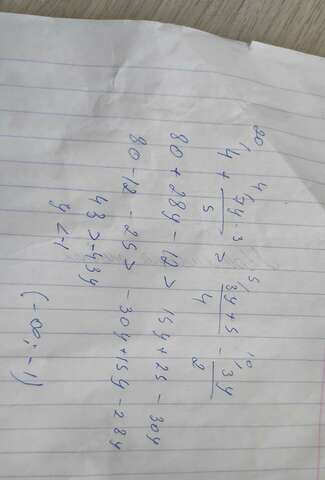 ²⁰⁾4 + ⁴⁾(7y - 3)/5 > ⁵⁾(3y + 5)/4 - ¹⁰⁾3y/2
80 + 28y - 12 > 15y + 25 - 30y
80 - 12 - 25 > -30y + 15y - 28y
43 > -43y
y < -1
(-∞; -1)